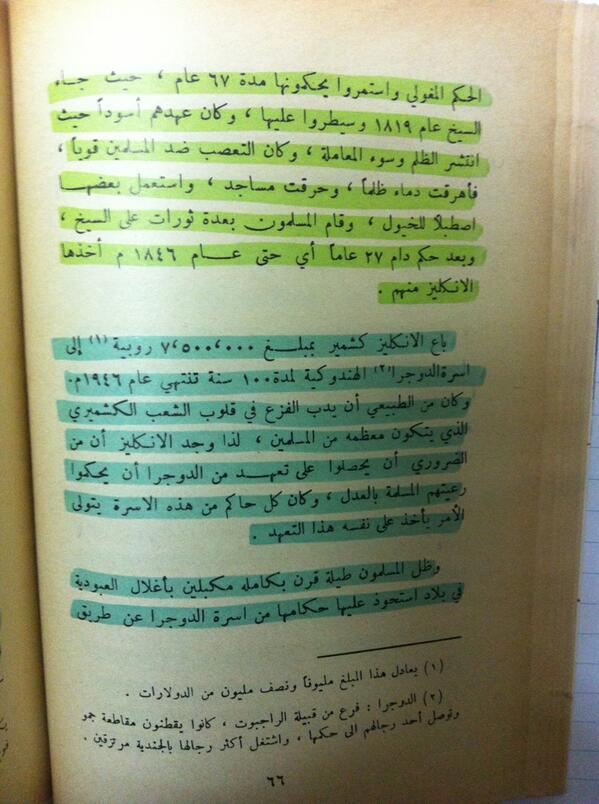 الحكم المغولي واستمروا يحكمونها مدة ٦٧ عام ، حيث جـاء
السيخ عام ١٨١٩ وسيطروا عليها ، وكان عهدهم أسوداً حيث
انتشر الظلم وسوء المعاملة ، وكان التعصب ضد المسلمين قوياً ،
فأهرقت دماء ظلماً ، وحرقت مساجد ، واستعمل بعضهـا
اصطبلاً للخيول ، وقام المسلمون بعدة ثورات على السيخ ،
وبعد حكم دام ٢٧ عاماً أي حتى عـــام ١٨٤٦ م أخذها
الانكليز منهم .
باع الانكليز كشمير بمبلـــغ ٧٬٥٠٠٬٠٠٠ روبية (١) إلى
اسرة الدوجرا (٢) الهندوكية لمدة ١٠٠ سنة تنتهي عام ١٩٤٦م.
وكان من الطبيعي أن يدب الفزع في قلوب الشعب الكشميري
الذي يتكون معظمه من المسلمين ، لذا وجد الانكليز أن من
الضروري أن يحصلوا على تعهـد من الدوجرا أن يحكموا
رعيتهم المسلمة بالعدل ، وكان كل حاكم من هذه الاسرة يتولى
الأمر يأخذ على نفسه هذا التعهد .
وظل المسلمون طيلة قرن بكامله مكبلين بأغلال العبودية
في بلاد استحوذ عليها حكامها من اسرة الدوجرا عن طريق
(١) يعادل هذا المبلغ مليوناً ونصف مليون من الدولارات .
(٢) الدوجرا : فرع من قبيلة الراجبوت ، كانوا يقطنون مقاطعة جمو
وتوصل أحد رجالهم الى حكمها ، واشتغل أكثر رجالها بالجندية مرتزقين .
٦٦